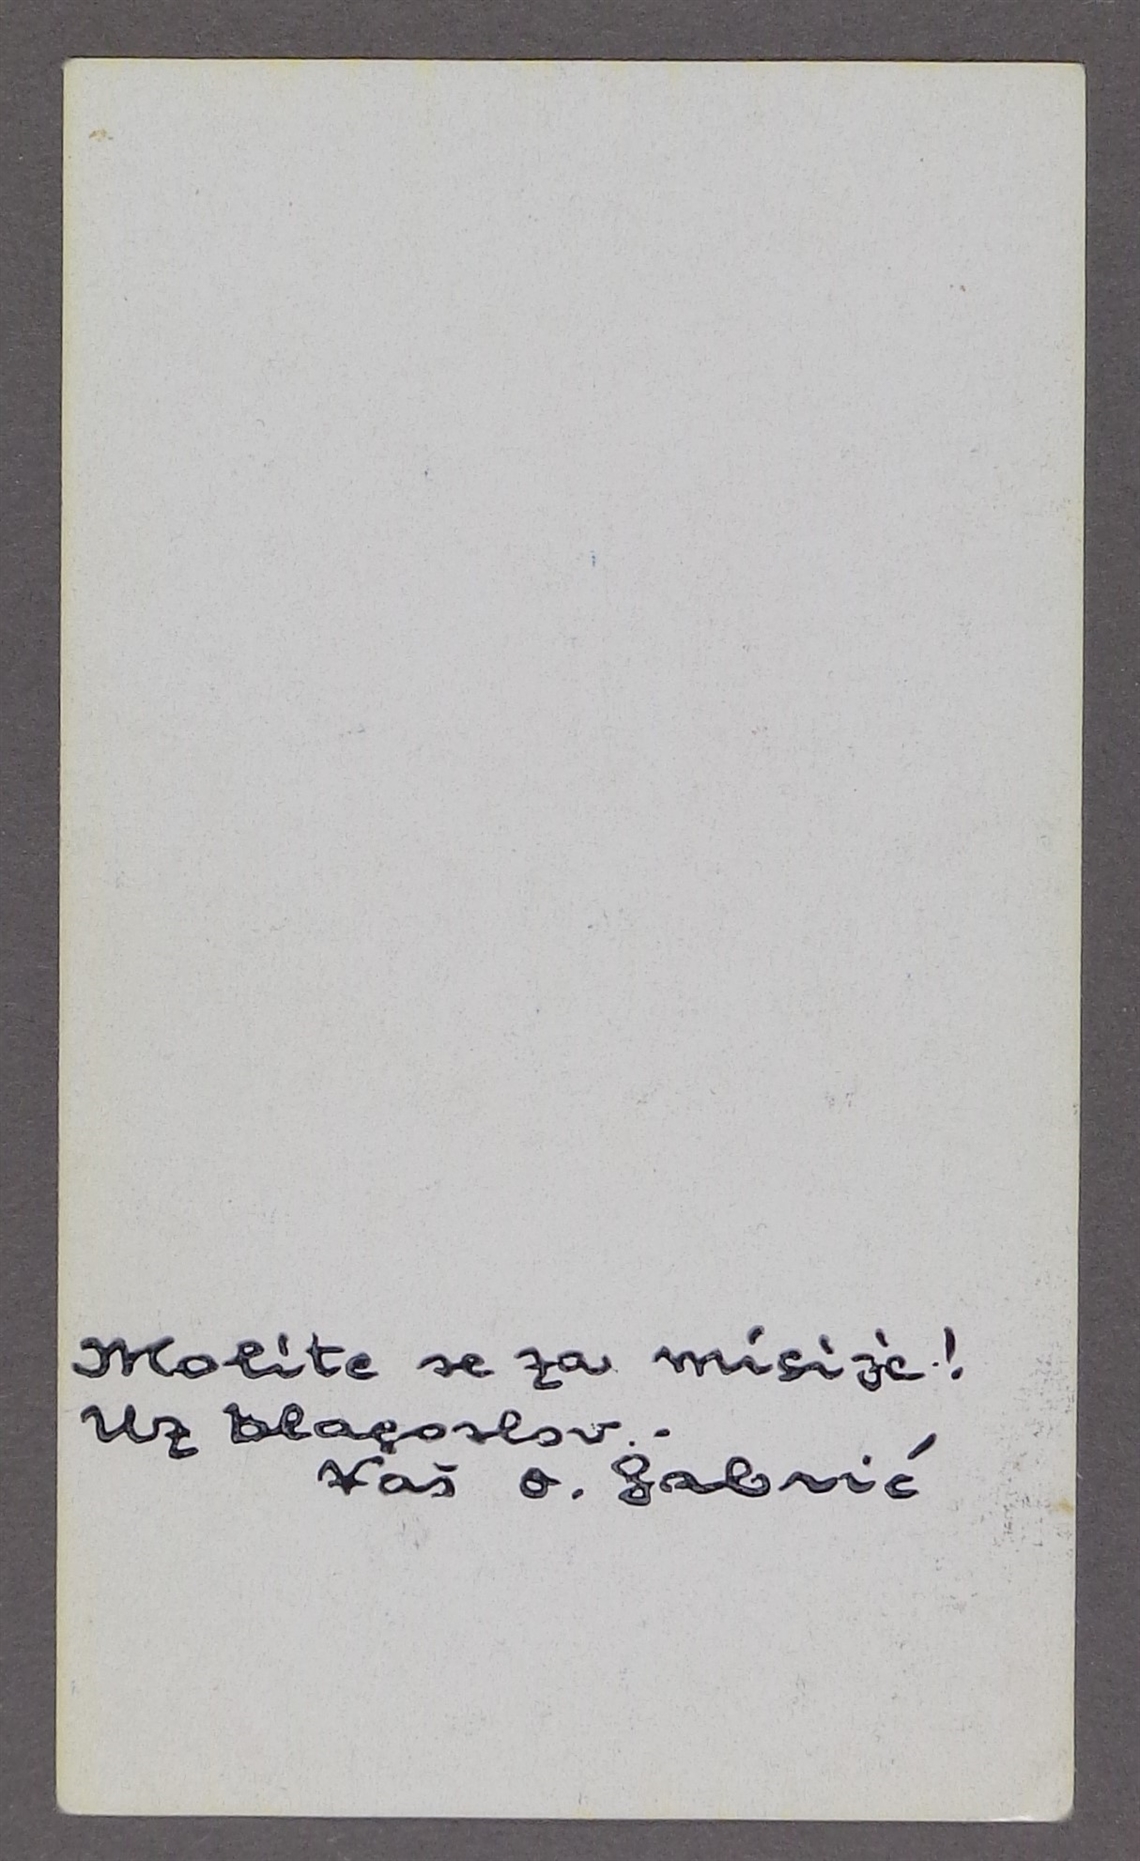 Molite se za misije!
Uz blagoslov..
Vaš o. Gabrić